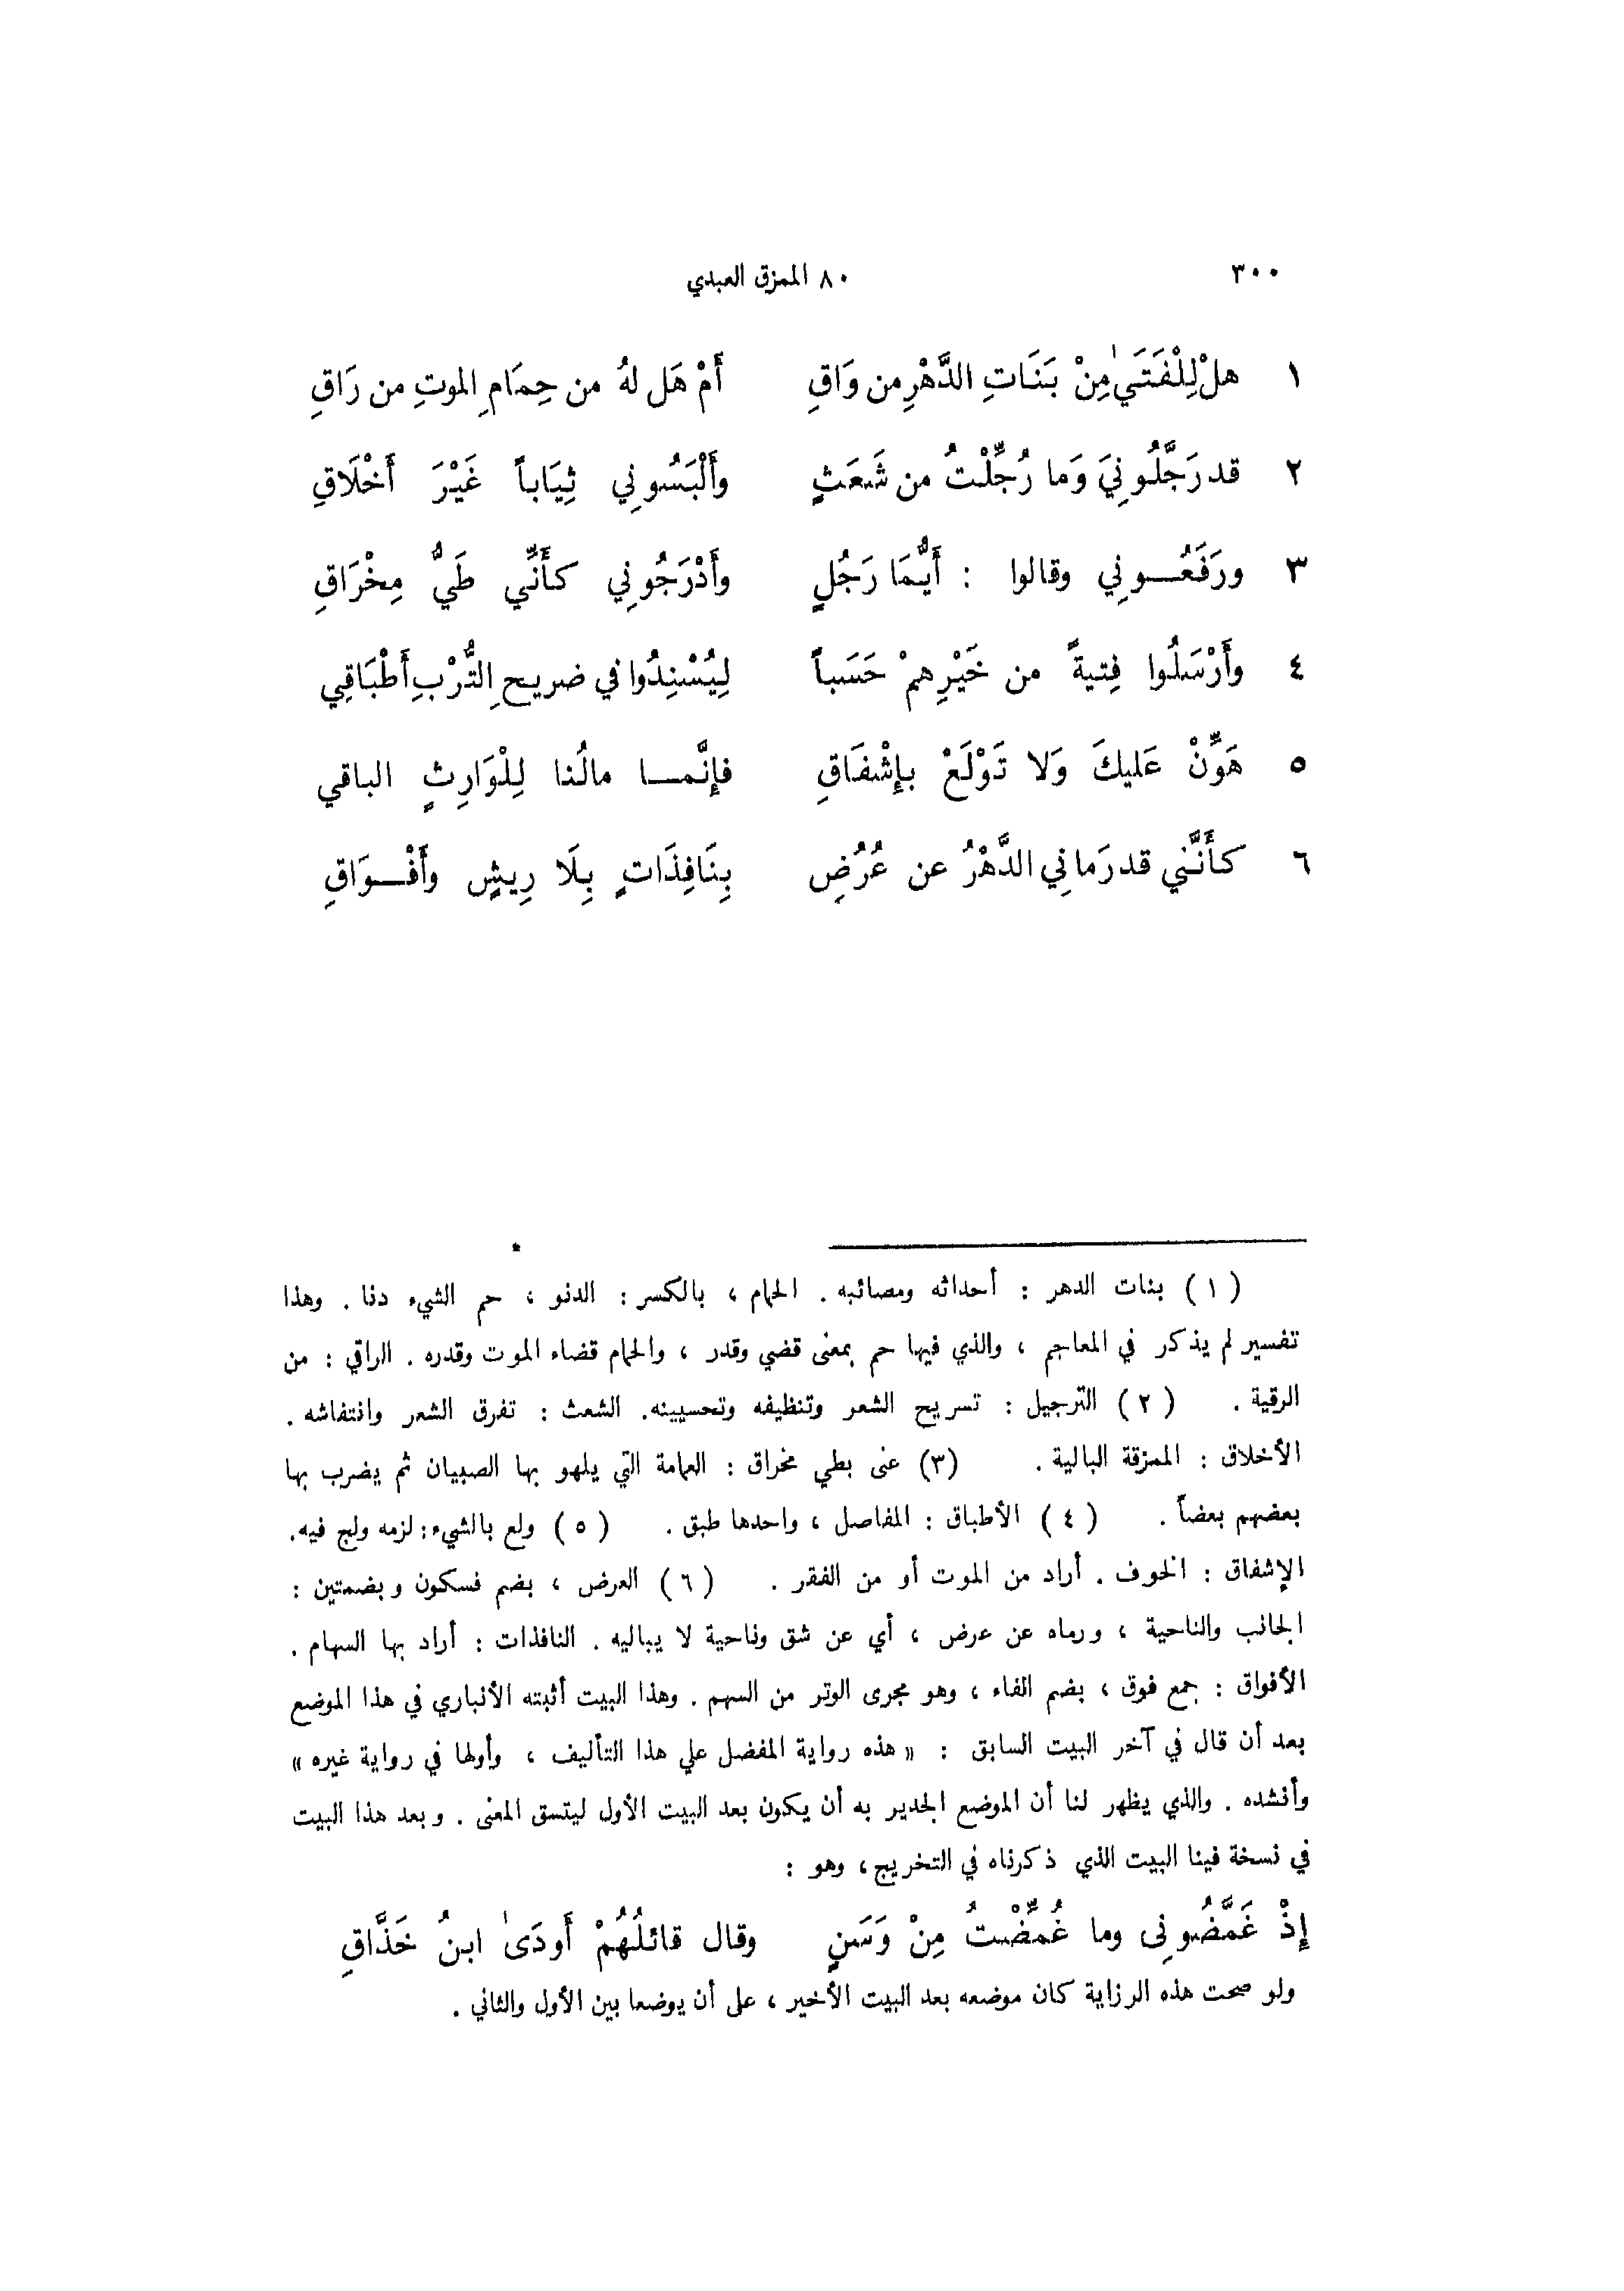 ٣٠٠
٨٠ الممزق العبدي
١ هلْ لِلْفَتَىٰ مِنْ بَنَاتِ الدَّهْرِ من وَاقِ أَمْ هَل لهُ من حِمَامِ الموتِ من رَاقِ
٢ قد رَجَّلُونِيَ وَما رُجِّلْتُ من شَعَثٍ وأَلْبَسُونِي ثِيَاباً غَيْرَ أَخْلَاقِ
٣ ورَفَعُونِي وقالوا : أَيُّمَا رَجُلٍ وأَدْرَجُونِي كأَنِّي طَيُّ مِخْرَاقِ
٤ وأَرْسَلُوا فِتيةً من خَيْرِهمْ حَسَباً لِيُسْنِدُوا في ضريحِ التُّرْبِ أَطْبَاقِي
٥ هَوِّنْ عَليكَ وَلا تَوْلَعْ بإِشْفَاقِ فإِنَّمـا مالُنا لِلْوَارِثِ الباقي
٦ كأَنَّني قد رَمانِي الدَّهْرُ عن عُرُضِ بِنَافِذَاتٍ بِلَا رِيشٍ وأَفْـوَاقِ
( ١ ) بنات الدهر : أحداثه ومصائبه . الحمام ، بالكسر : الدنو ، حم الشيء دنا . وهذا
تفسير لم يذكر في المعاجم ، والذي فيها حم بمعنى قضي وقدر ، والحمام قضاء الموت وقدره . الراقي : من
الرقية . ( ٢ ) الترجيل : تسريح الشعر وتنظيفه وتحسيينه. الشعث : تفرق الشعر وانتفاشه .
الأخلاق : الممزقة البالية . (٣) عنى بطي مخراق : العمامة التي يلهو بها الصبيان ثم يضرب بها
بعضهم بعضاً . ( ٤ ) الأطباق : المفاصل ، واحدها طبق . ( ٥ ) ولع بالشيء : لزمه ولج فيه.
الإشفاق : الخوف . أراد من الموت أو من الفقر . ( ٦ ) العرض ، بضم فسكون وبضمتين :
الجانب والناحية ، ورماه عن عرض ، أي عن شق وناحية لا يباليه . النافذات : أراد بها السهام .
الأفواق : جمع فوق ، بضم الفاء ، وهو مجرى الوتر من السهم . وهذا البيت أثبته الأنباري في هذا الموضع
بعد أن قال في آخر البيت السابق : « هذه رواية المفضل علي هذا التأليف ، وأولها في رواية غيره »
وأنشده . والذي يظهر لنا أن الموضع الجدير به أن يكون بعد البيت الأول ليتسق المعنى . وبعد هذا البيت
في نسخة فينا البيت الذي ذكرناه في التخريج ، وهو :
إِذْ غَمَّضُونِى وما غُمِّضْتُ مِنْ وَسَنٍ وقال قائلُهُمْ أَودَىٰ ابنُ خَذَّاقِ
ولو صحت هذه الرزاية كان موضعه بعد البيت الأخير ، على أن يوضعا بين الأول والثاني .